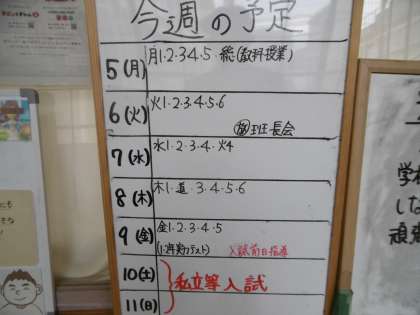 今週の予定
5(月) 月1・2・3・4・5 総(教科授業)
6(火) 火1・2・3・4・5・6
班長会
7(水) 水1・2・3・4・火4
8(木) 木1・道・3・4・5・6
9(金) 金1・2・3・4・5
(1年実力テスト) 入試前日指導
10(土)
私立等入試
11(日)
学校
しな
頑張